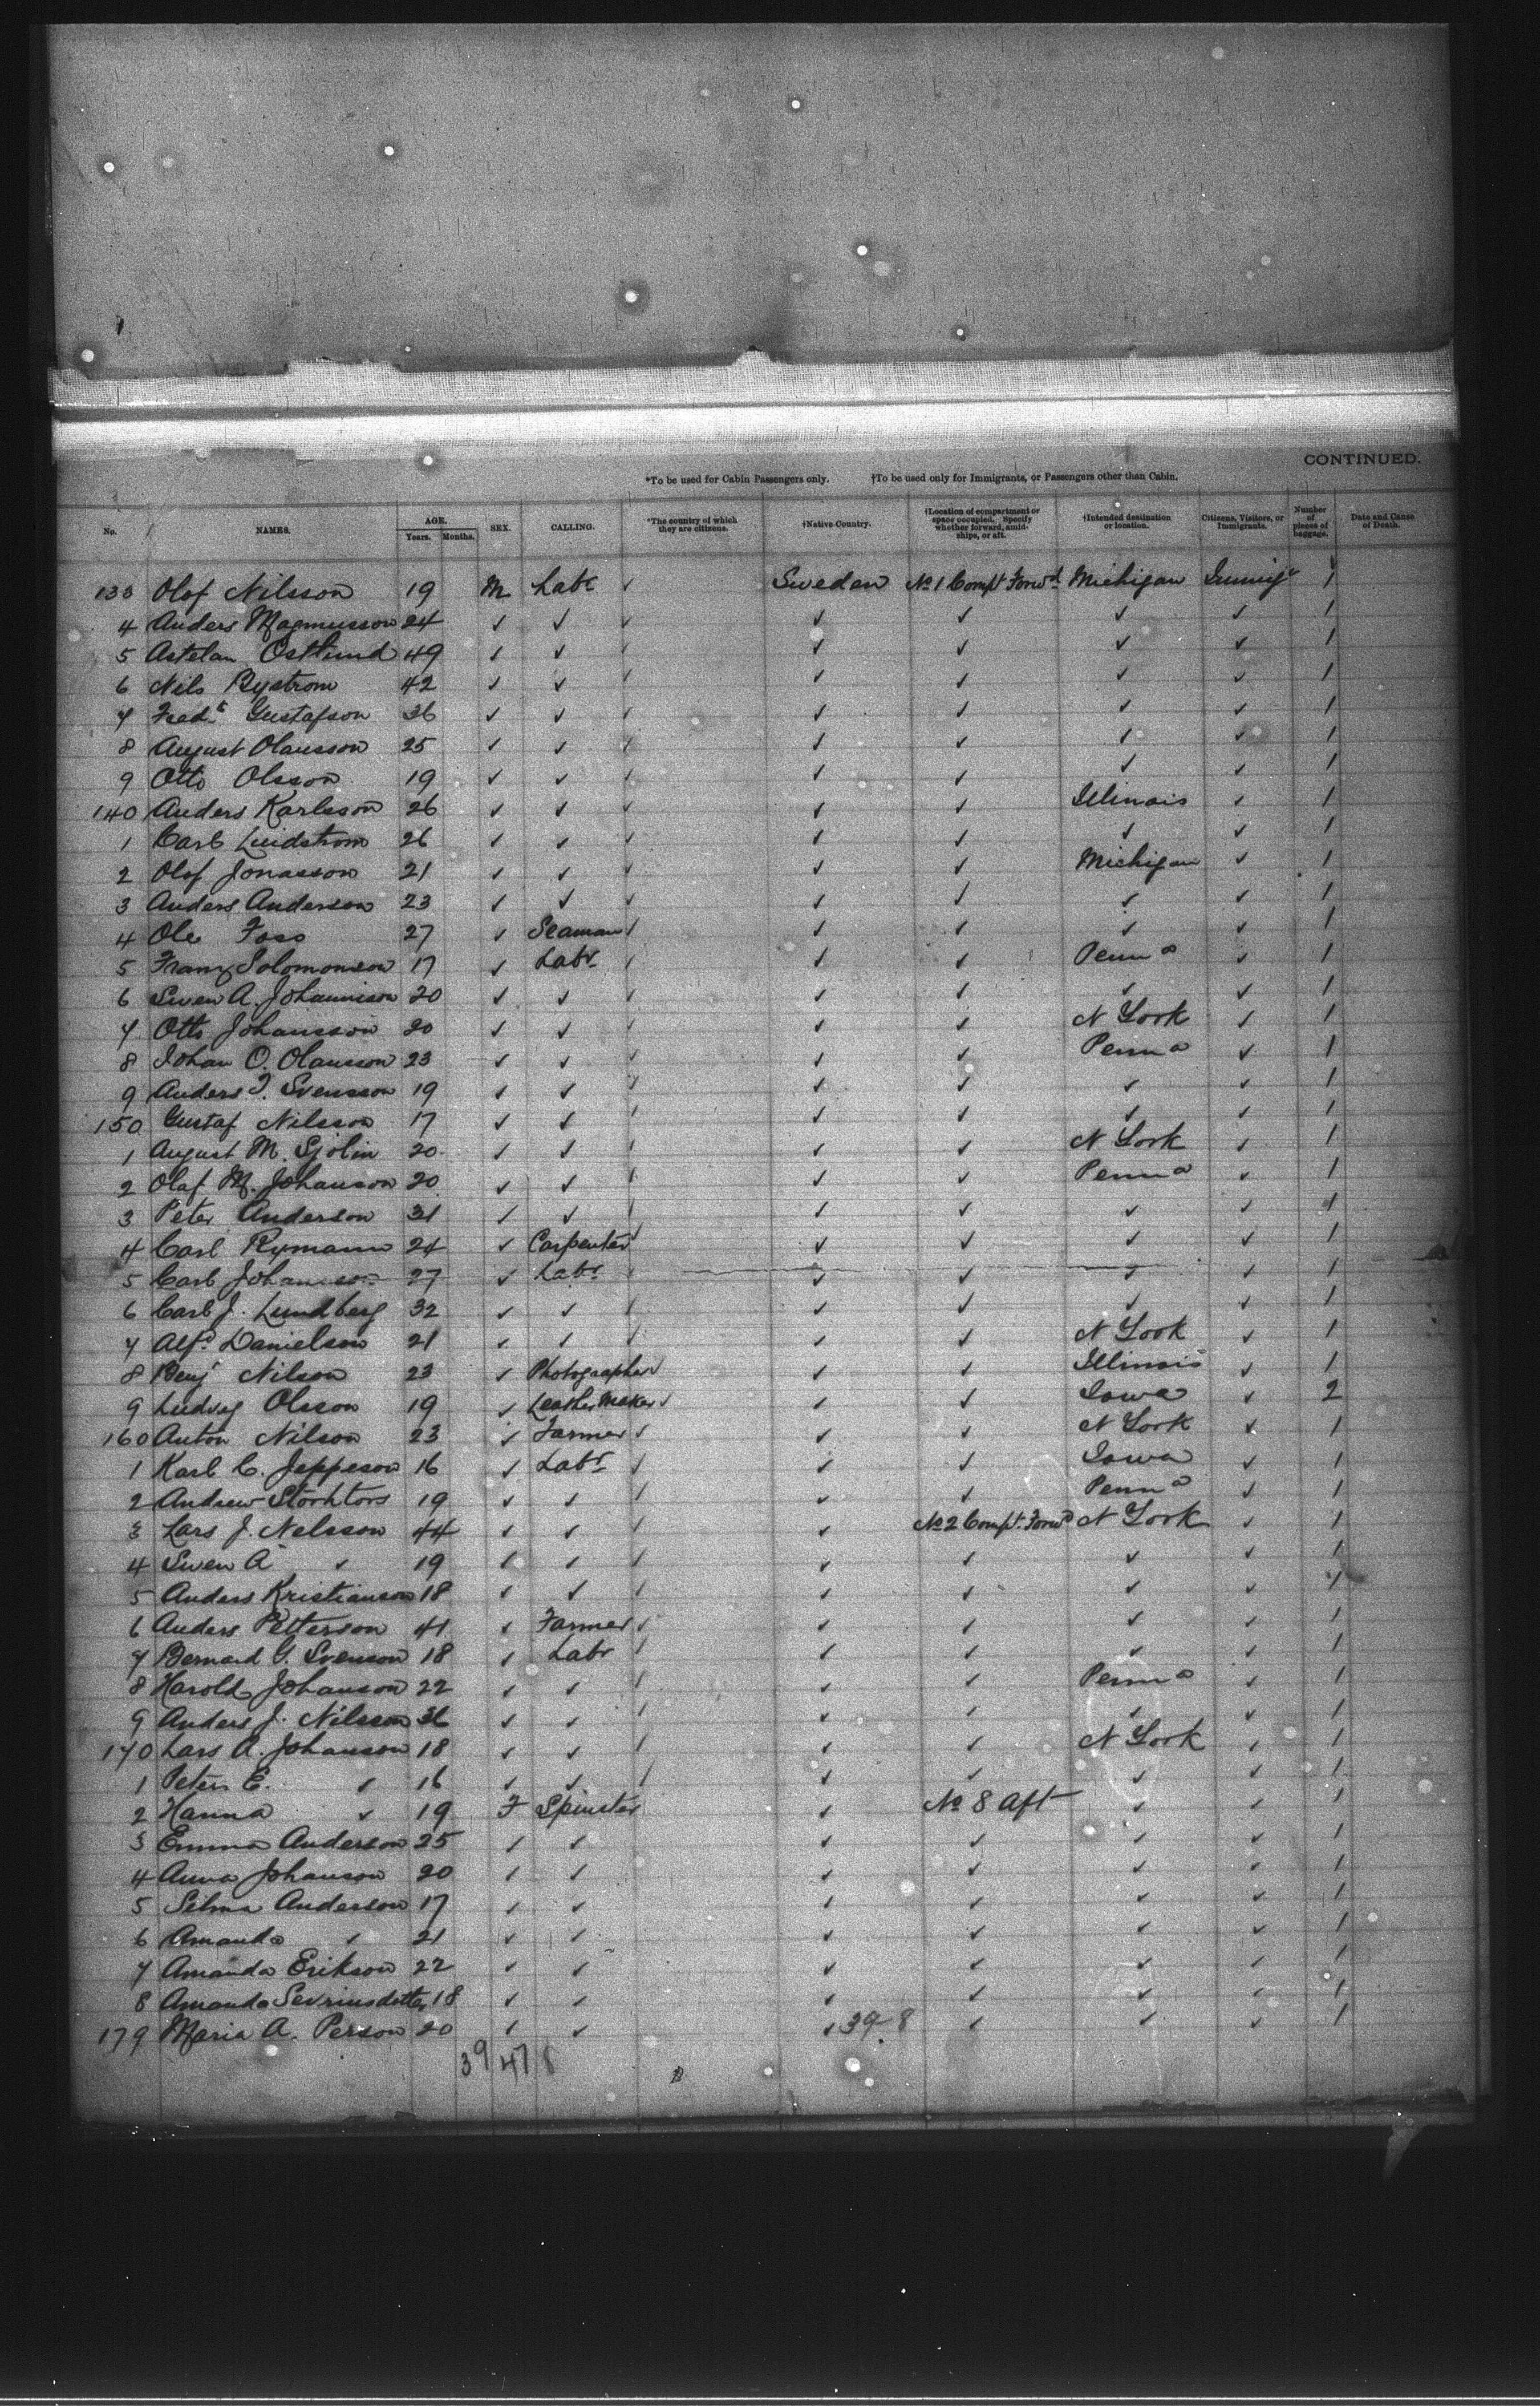 CONTINUED.
*To be used for Cabin Passengers only. †To be used only for Immigrants, or Passengers other than Cabin.
No. NAMES. AGE. Years. Months. SEX. CALLING. *The country of which they are citizens. †Native Country. †Location of compartment or space occupied. Specify whether forward, amidships, or aft. †Intended destination or location. Citizens, Visitors, or Immigrants. Number of pieces of baggage. Date and Cause of Death.
133 Olof Nilsson 19 M Labr ✓ Sweden No 1 Compt Forwd Michigan Immigt 1
4 Anders Magnusson 24 ✓ ✓ ✓ ✓ ✓ ✓ ✓ 1
5 Ostlund 49 ✓ ✓ ✓ ✓ ✓ ✓ ✓ 1
6 Nils Rystrom 42 ✓ ✓ ✓ ✓ ✓ ✓ ✓ 1
7 Fredk Gustafson 36 ✓ ✓ ✓ ✓ ✓ ✓ ✓ 1
8 August Olausson 25 ✓ ✓ ✓ ✓ ✓ ✓ ✓ 1
9 Otto Olsson 19 ✓ ✓ ✓ ✓ ✓ ✓ ✓ 1
140 Anders Karlsson 26 ✓ ✓ ✓ ✓ ✓ Illinois ✓ 1
1 Carl Lindstrom 26 ✓ ✓ ✓ ✓ ✓ ✓ ✓ 1
2 Olof Jonasson 21 ✓ ✓ ✓ ✓ ✓ Michigan ✓ 1
3 Anders Anderson 23 ✓ ✓ ✓ ✓ ✓ ✓ ✓ 1
4 Ole Foss 27 ✓ Seaman ✓ ✓ ✓ ✓ ✓ 1
5 Franz Solomonson 17 ✓ Labr ✓ ✓ ✓ Penna ✓ 1
6 Swen A. Johannison 20 ✓ ✓ ✓ ✓ ✓ ✓ ✓ 1
7 Otto Johansson 20 ✓ ✓ ✓ ✓ ✓ N York ✓ 1
8 Johan O. Olausson 23 ✓ ✓ ✓ ✓ ✓ Penna ✓ 1
9 Anders J. Svensson 19 ✓ ✓ ✓ ✓ ✓ ✓ ✓ 1
150 Gustaf Nilsson 17 ✓ ✓ ✓ ✓ ✓ ✓ ✓ 1
1 August M. Sjolin 20 ✓ ✓ ✓ ✓ ✓ N York ✓ 1
2 Olaf M. Johanson 20 ✓ ✓ ✓ ✓ ✓ Penna ✓ 1
3 Peter Anderson 31 ✓ ✓ ✓ ✓ ✓ ✓ ✓ 1
4 Carl Rymann 24 ✓ Carpenter ✓ ✓ ✓ ✓ ✓ 1
5 Carl Johanson 27 ✓ Labr ✓ ✓ ✓ ✓ ✓ 1
6 Carl J. Lundberg 32 ✓ ✓ ✓ ✓ ✓ ✓ ✓ 1
7 Alfd Danielson 21 ✓ ✓ ✓ ✓ ✓ N York ✓ 1
8 Benj Nilson 23 ✓ Photographer ✓ ✓ ✓ Illinois ✓ 1
9 Ludvig Olsson 19 ✓ Leather Maker ✓ ✓ ✓ Iowa ✓ 2
160 Anton Nilson 23 ✓ Farmer ✓ ✓ ✓ N York ✓ 1
1 Karl C. Jeppeson 16 ✓ Labr ✓ ✓ ✓ Iowa ✓ 1
2 Andrew 19 ✓ ✓ ✓ ✓ ✓ Penna ✓ 1
3 Lars J. Nelsson 44 ✓ ✓ ✓ ✓ No 2 Compt. Forwd N York ✓ 1
4 Swen A ✓ 19 ✓ ✓ ✓ ✓ ✓ ✓ ✓ 1
5 Anders Kristianson 18 ✓ ✓ ✓ ✓ ✓ ✓ ✓ 1
6 Anders Petterson 41 ✓ Farmer ✓ ✓ ✓ ✓ ✓ 1
7 Bernard G. Svenson 18 ✓ Labr ✓ ✓ ✓ ✓ ✓ 1
8 Harold Johanson 22 ✓ ✓ ✓ ✓ ✓ Penna ✓ 1
9 Anders J. Nilsson 36 ✓ ✓ ✓ ✓ ✓ ✓ ✓ 1
170 Lars A. Johanson 18 ✓ ✓ ✓ ✓ ✓ N York ✓ 1
1 Peter E. ✓ 16 ✓ ✓ ✓ ✓ ✓ ✓ ✓ 1
2 Hanna ✓ 19 F Spinster ✓ No 8 Aft ✓ ✓ 1
3 Emma Anderson 25 ✓ ✓ ✓ ✓ ✓ ✓ 1
4 Anna Johanson 20 ✓ ✓ ✓ ✓ ✓ ✓ 1
5 Selma Anderson 17 ✓ ✓ ✓ ✓ ✓ ✓ 1
6 Amanda ✓ 21 ✓ ✓ ✓ ✓ ✓ ✓ 1
7 Amanda Erikson 22 ✓ ✓ ✓ ✓ ✓ ✓ 1
8 Amanda Sevrinsdotter 18 ✓ ✓ ✓ ✓ ✓ ✓ 1
179 Maria A. Person 20 ✓ ✓ ✓ 39 8 ✓ ✓ ✓ 1
39 47 8